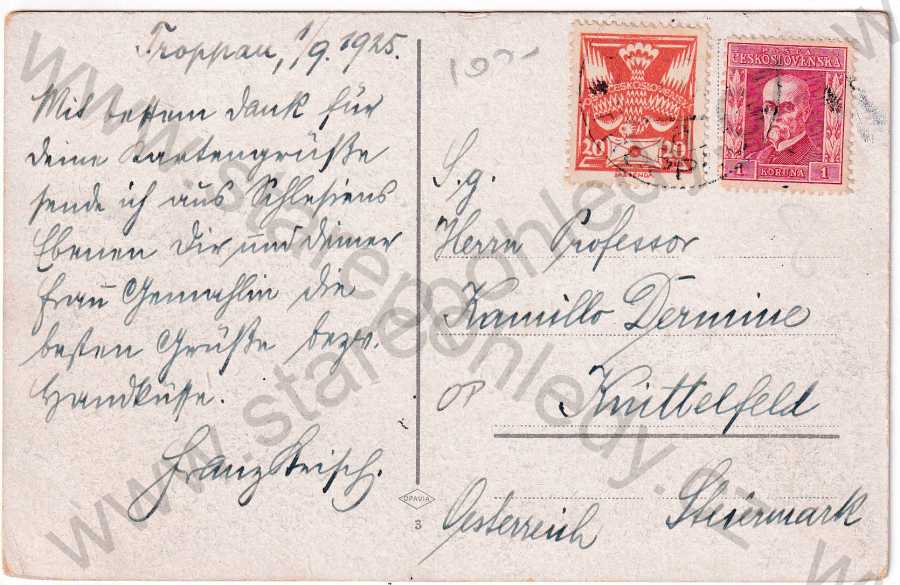 Troppau, 1/9. 1925.
Mit bestem Dank für
deine Kartengrüße
sende ich aus Schlesiens
Ebenen Dir und deiner
Frau Gemahlin die
besten Grüße bezw.
Handküsse.
Franz
POŠTA ČESKOSLOVENSKÁ
20 20
POŠTA
ČESKOSLOVENSKÁ
1 KORUNA 1
S. g.
Herrn Professor
Kamillo Dermine
OP
Knittelfeld
Steiermark
Oesterreich
OPAVIA
3
www.starepohledy.cz
www.starepohledy.cz